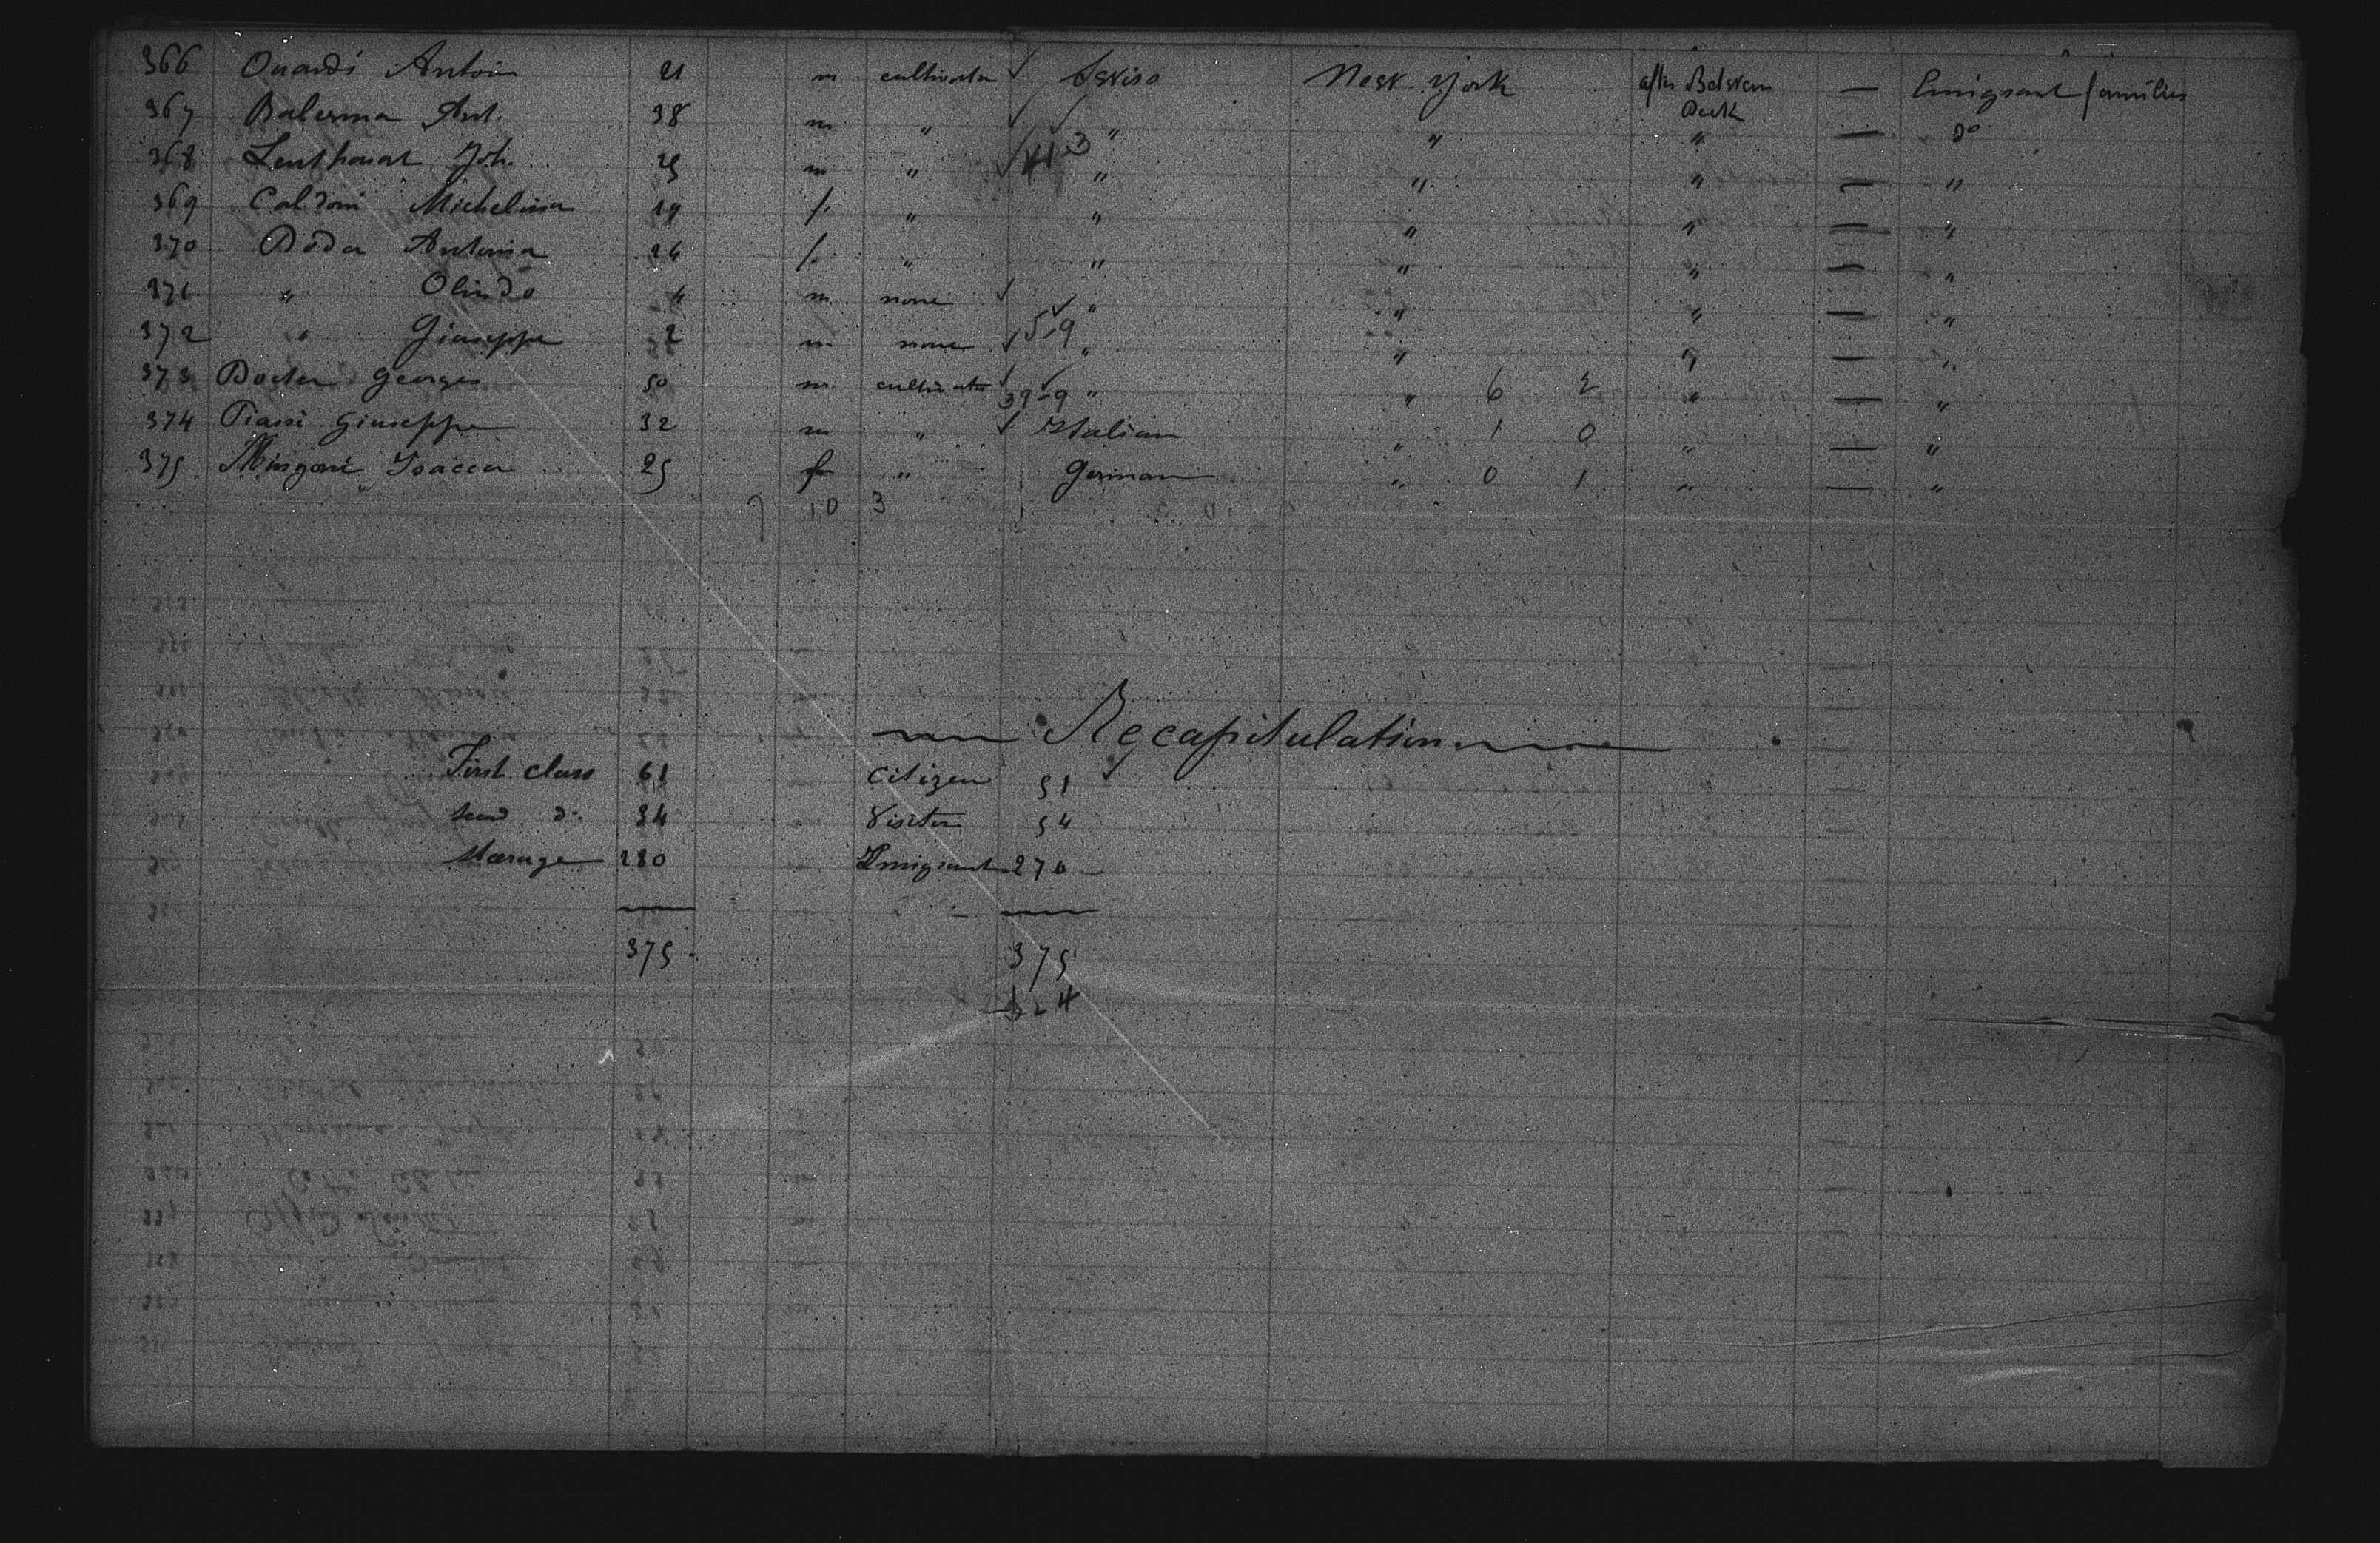 366 Onardi Antoin 21 m cultivator ✓ Swiss New York after Between Emigrant families
Deck
367 Balerma Ant. 38 m " ✓ ✓ " " " — do
368 Lenthonat Joh. 25 m " ✓ 413 " " " — "
369 Caldoni Michelina 19 f. " " " " — "
370 Doda Antonia 26 f. " " " " — "
371 " Olindo 4 m none ✓ " " " — "
372 " Giuseppe 2 m none ✓ ✓ 519 " " " — "
373 Docter Georges 50 m cultivator ✓ ✓ 39-9 " " 6 2 " — "
374 Piassi Giuseppe 32 m " ✓ Italian " 1 0 " — "
375 Mingoni Isacca 25 f " German " 0 1 " — "
10 3
Recapitulation
First class 61 Citizen 51
34 Visitor 54
Steerage 280 Emigrant 270
375 375
324